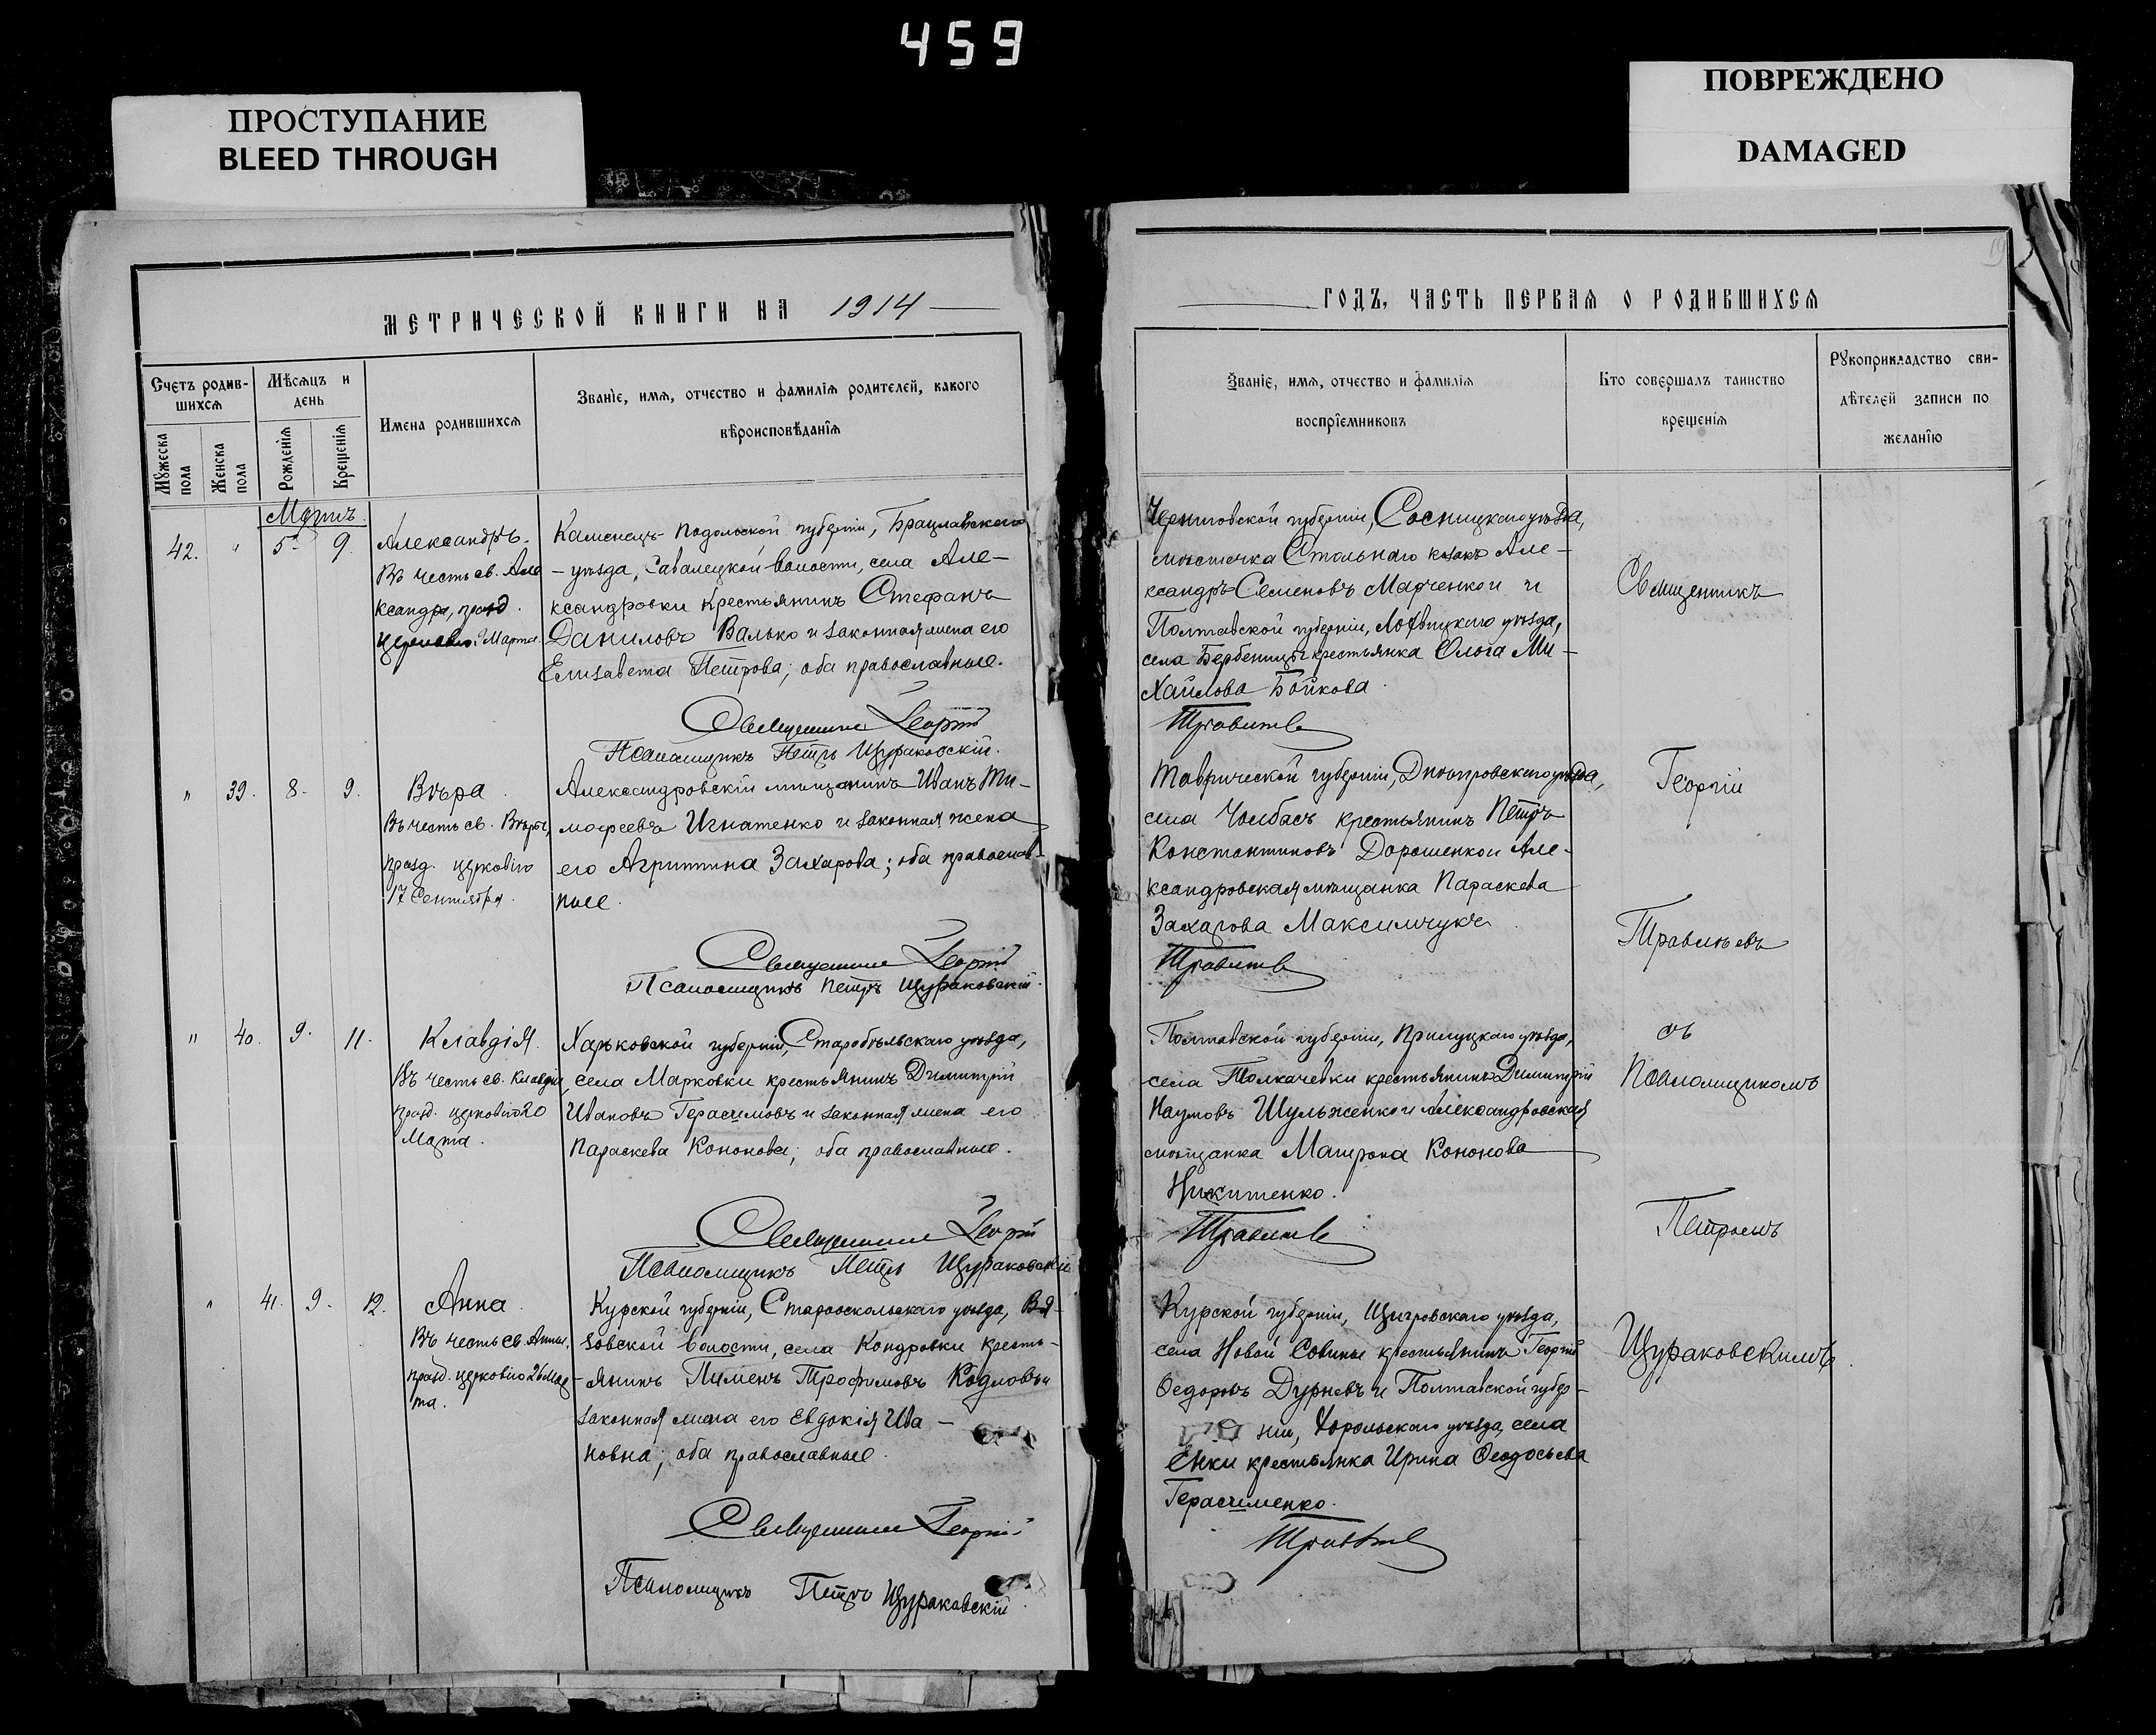 459
ПРОСТУПАНИЕ
BLEED THROUGH
ПОВРЕЖДЕНО
DAMAGED
МЕТРИЧЕСКОЙ КНИГИ НА 1914
Счетъ родив-
шихся
Мѣсяцъ и
день
Имена родившихся
Званіе, имя, отчество и фамилія родителей, какого
вѣроисповѣданія
Мужеска
пола
Женска
пола
Рожденія
Крещенія
Мартъ
42. " 5. 9.
Александръ.
Въ честь св. Але
ксандра, празд.
Марта.
Каменецъ-Подольской губерніи, Брацлавскаго
уѣзда, волости, села Але-
ксандровки крестьянинъ Стефанъ
Даниловъ Валько и законная жена его
Елизавета Петрова; оба православные.
Священникъ Георгій
Псаломщикъ Петръ Щураковскій.
" 39. 8. 9.
Вѣра.
Въ честь св. Вѣры,
празд. церковію
17 Сентября.
Александровскій мѣщанинъ Иванъ Ти-
мофеевъ Игнатенко и законная жена
его Агриппина Захарова; оба православ-
ные.
Священникъ Георгій
Псаломщикъ Петръ Щураковскій.
" 40. 9. 11.
Клавдія.
Въ честь св. Клавдіи
празд. церковію 20
Марта.
Харьковской губерніи, Старобѣльскаго уѣзда,
села Марковки крестьянинъ Димитрій
Ивановъ Герасимовъ и законная жена его
Параскева Кононова; оба православные.
Священникъ Георгій
Псаломщикъ Петръ Щураковскій
" 41. 9. 12.
Анна.
Въ честь св. Анны,
празд. церковію 26 Мар-
та.
Курской губерніи, Старооскольскаго уѣзда, Вя-
зовской волости, села Кондровки кресть-
янинъ Пименъ Трофимовъ и
законная жена его Евдокія Ива-
новна; оба православные.
Священникъ Георгій
Псаломщикъ Петръ Щураковскій.
ГОДЪ, ЧАСТЬ ПЕРВАЯ О РОДИВШИХСЯ
Званіе, имя, отчество и фамилія
воспріемниковъ
Кто совершалъ таинство
крещенія
Рукоприкладство сви-
дѣтелей записи по
желанію
Черниговской губерніи, Сосницкаго уѣзда,
мѣстечка Стольнаго козакъ Але-
ксандръ Семеновъ Марченко и
Полтавской губерніи, Лохвицкаго уѣзда,
села Бербеницы крестьянка Ольга Ми-
хайлова Бойкова.
Травлѣевъ
Таврической губерніи, Днѣпровскаго уѣзда,
села Чолбасъ крестьянинъ Петръ
Константиновъ Дорошенко и Але-
ксандровская мѣщанка Параскева
Захарова Максимчукъ.
Травлѣевъ
Полтавской губерніи, Прилуцкаго уѣзда,
села Толкачевки крестьянинъ Димитрій
Наумовъ Шульженко и Александровская
мѣщанка Матрона Кононова
Никитенко.
Травлѣевъ
Курской губерніи, Щигровскаго уѣзда,
села Новой крестьянинъ Георгій
Ѳедоровъ Дурневъ и Полтавской губер-
ніи, Хорольскаго уѣзда, села
Енки крестьянка Ирина Ѳеодосьева
Герасименко.
Травлѣевъ
Священникъ
Георгій
Травлѣевъ
съ
Псаломщикомъ
Петромъ
Щураковскимъ.